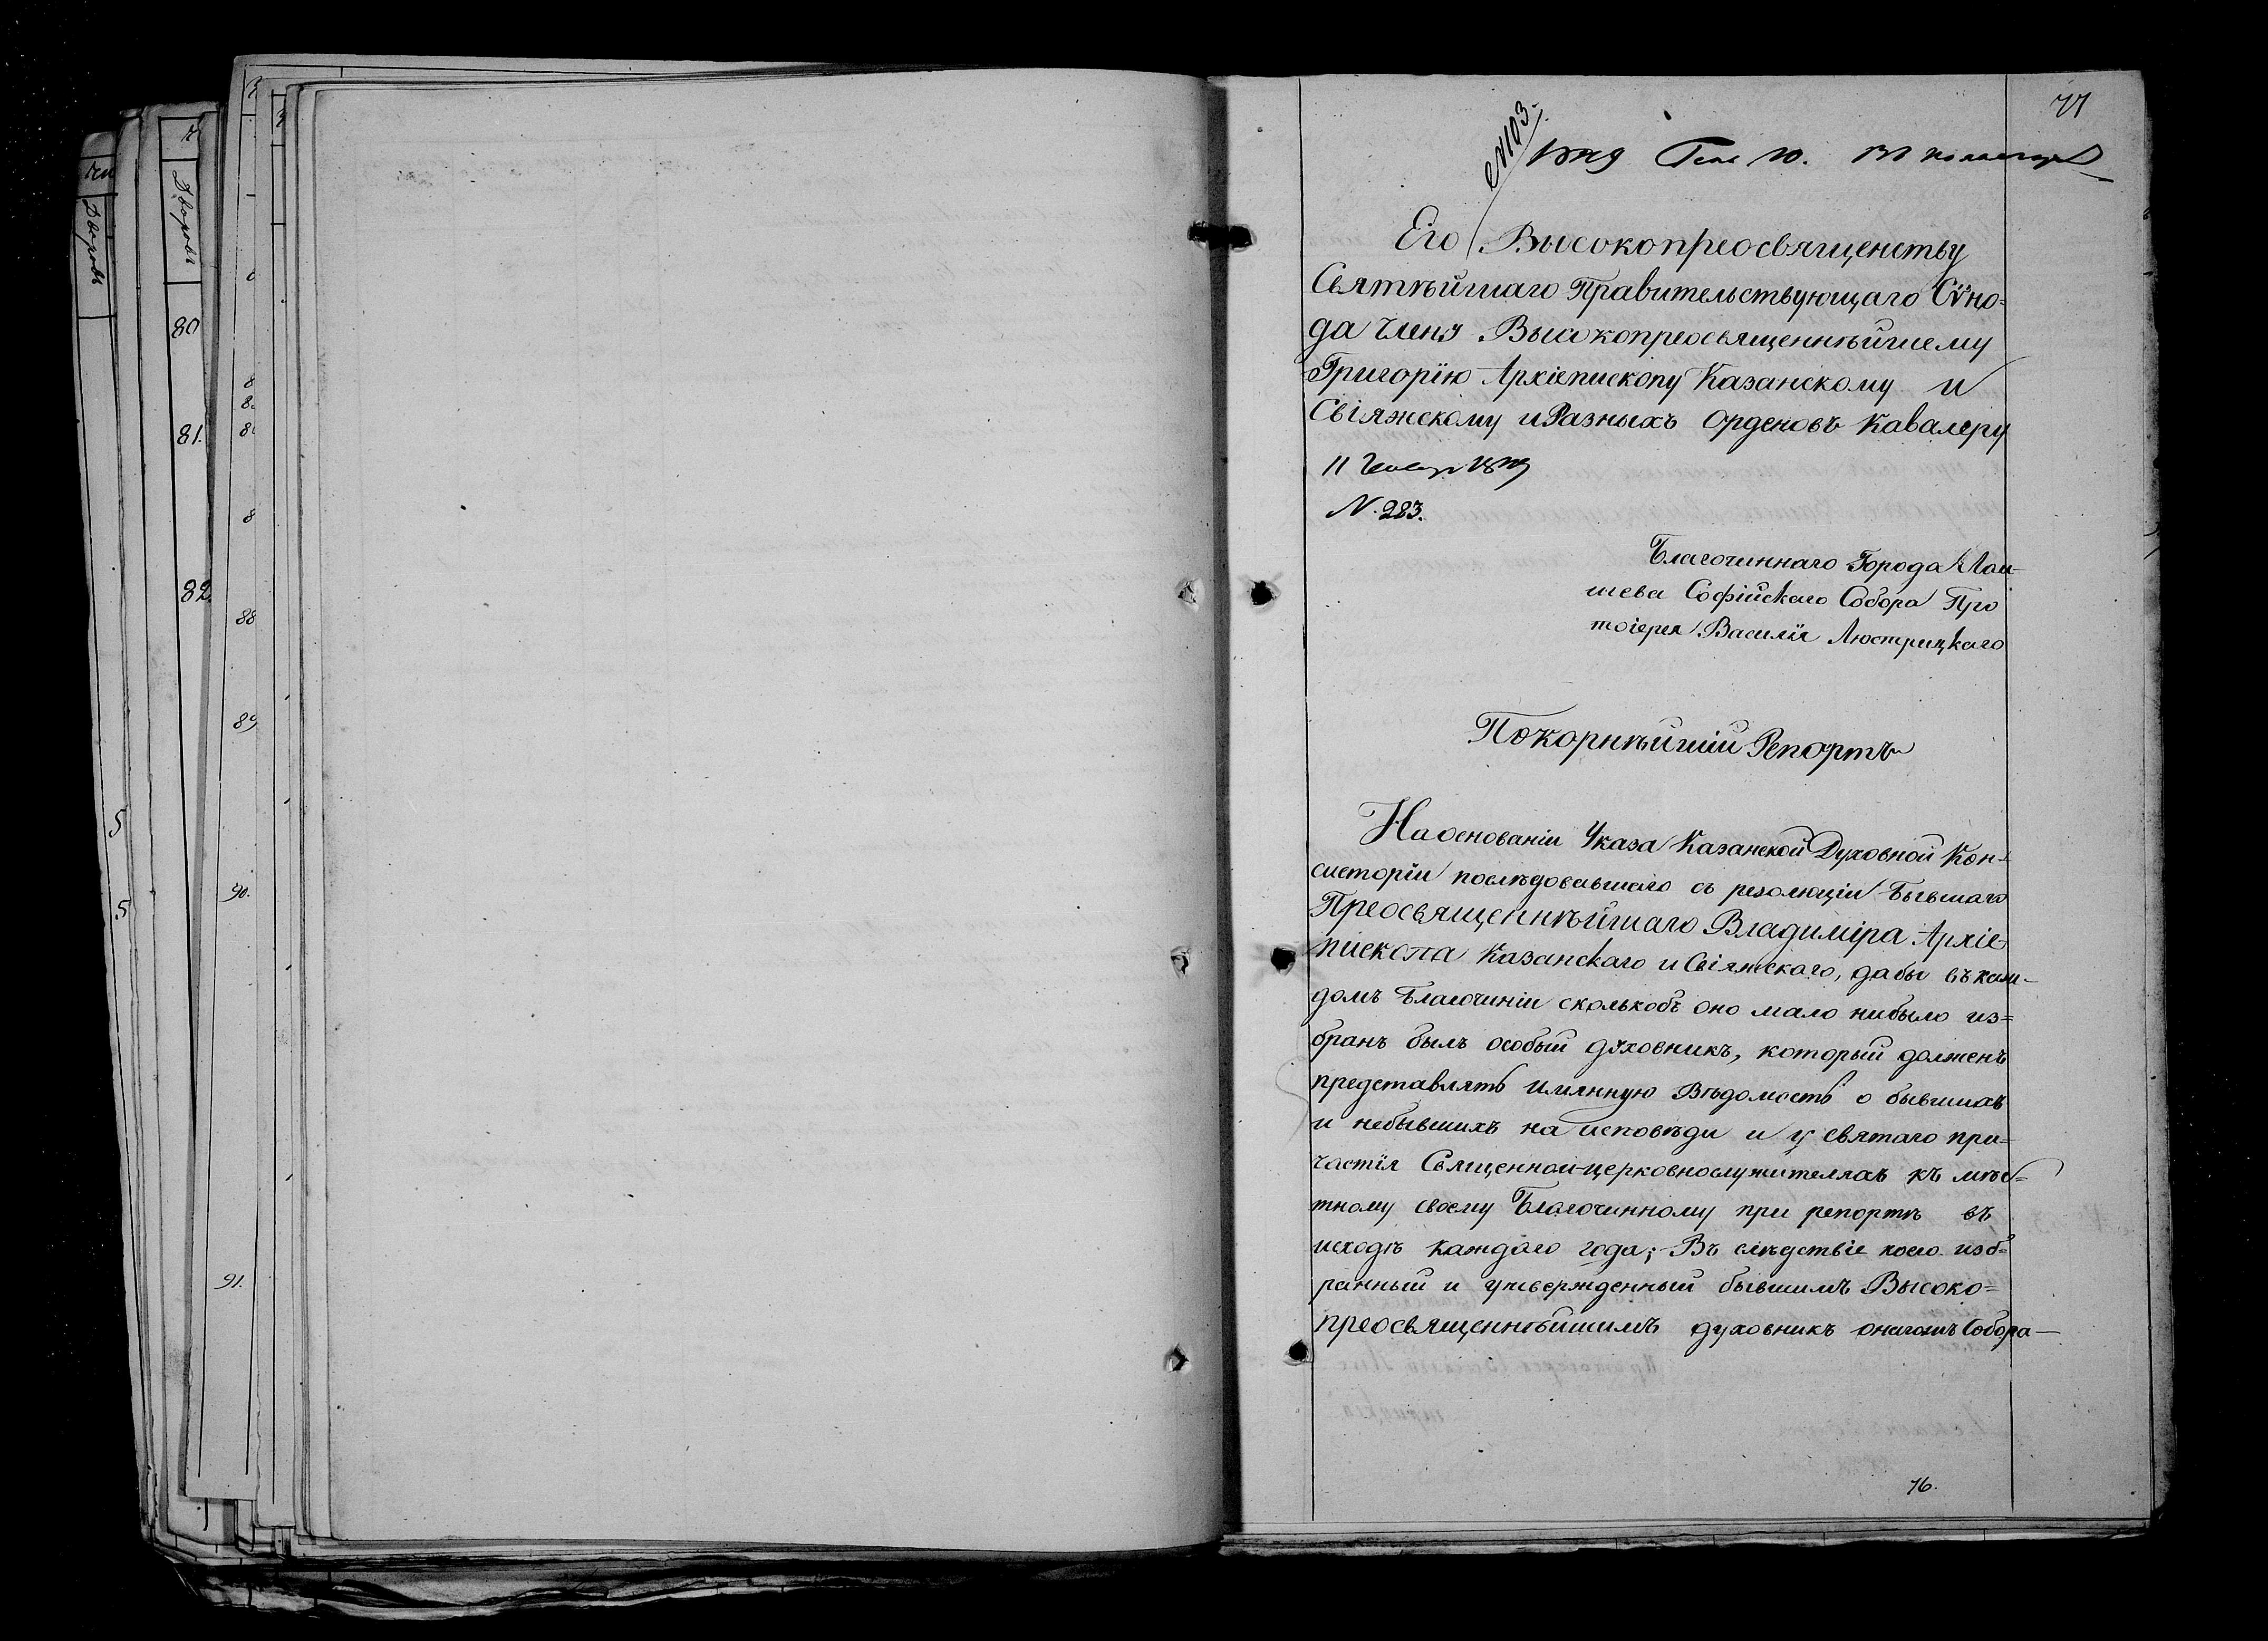 77
№103.
1849 Генв 10. Въ консисторiю
Его Высокопреосвященству
Святѣйшаго Правительствующаго Сѵно-
да члену Высокопреосвященнѣйшему
Григорїю Архіепископу Казанскому и
Свіяжскому и Разныхъ Орденовъ Кавалеру
11 Генваря 1849
N. 283.
Благочиннаго Города Лаи-
шева Софійскаго Собора Про
тоіерея Василїя Люстрицкаго
Покорнѣйшій Репортъ
На основаніи Указа Казанской Духовной Кон-
систоріи послѣдовавшаго съ резолюціи Бывшаго
Преосвященнѣйшаго Владиміра Архіе-
пископа Казанскаго и Свіяжскаго, дабы въ каж-
домъ Благочиніи сколькобъ оно мало нибыло из=
бранъ былъ особый духовникъ, который долженъ
представлять имянную Вѣдомость о бывшихъ
и небывшихъ на исповѣди и у святаго при=
частїя Священно-и-церковнослужителяхъ къ мѣс=
тному своему Благочинному при репортѣ въ
исходѣ каждаго года; Въ слѣдствіе коего изб=
ранный и утвержденный бывшимъ Высоко=
преосвященнѣйшимъ духовникъ онагожъ Собора—
76.
80
81.
82.
88
89
90.
91.
5
5
Дворовъ
Дворовъ